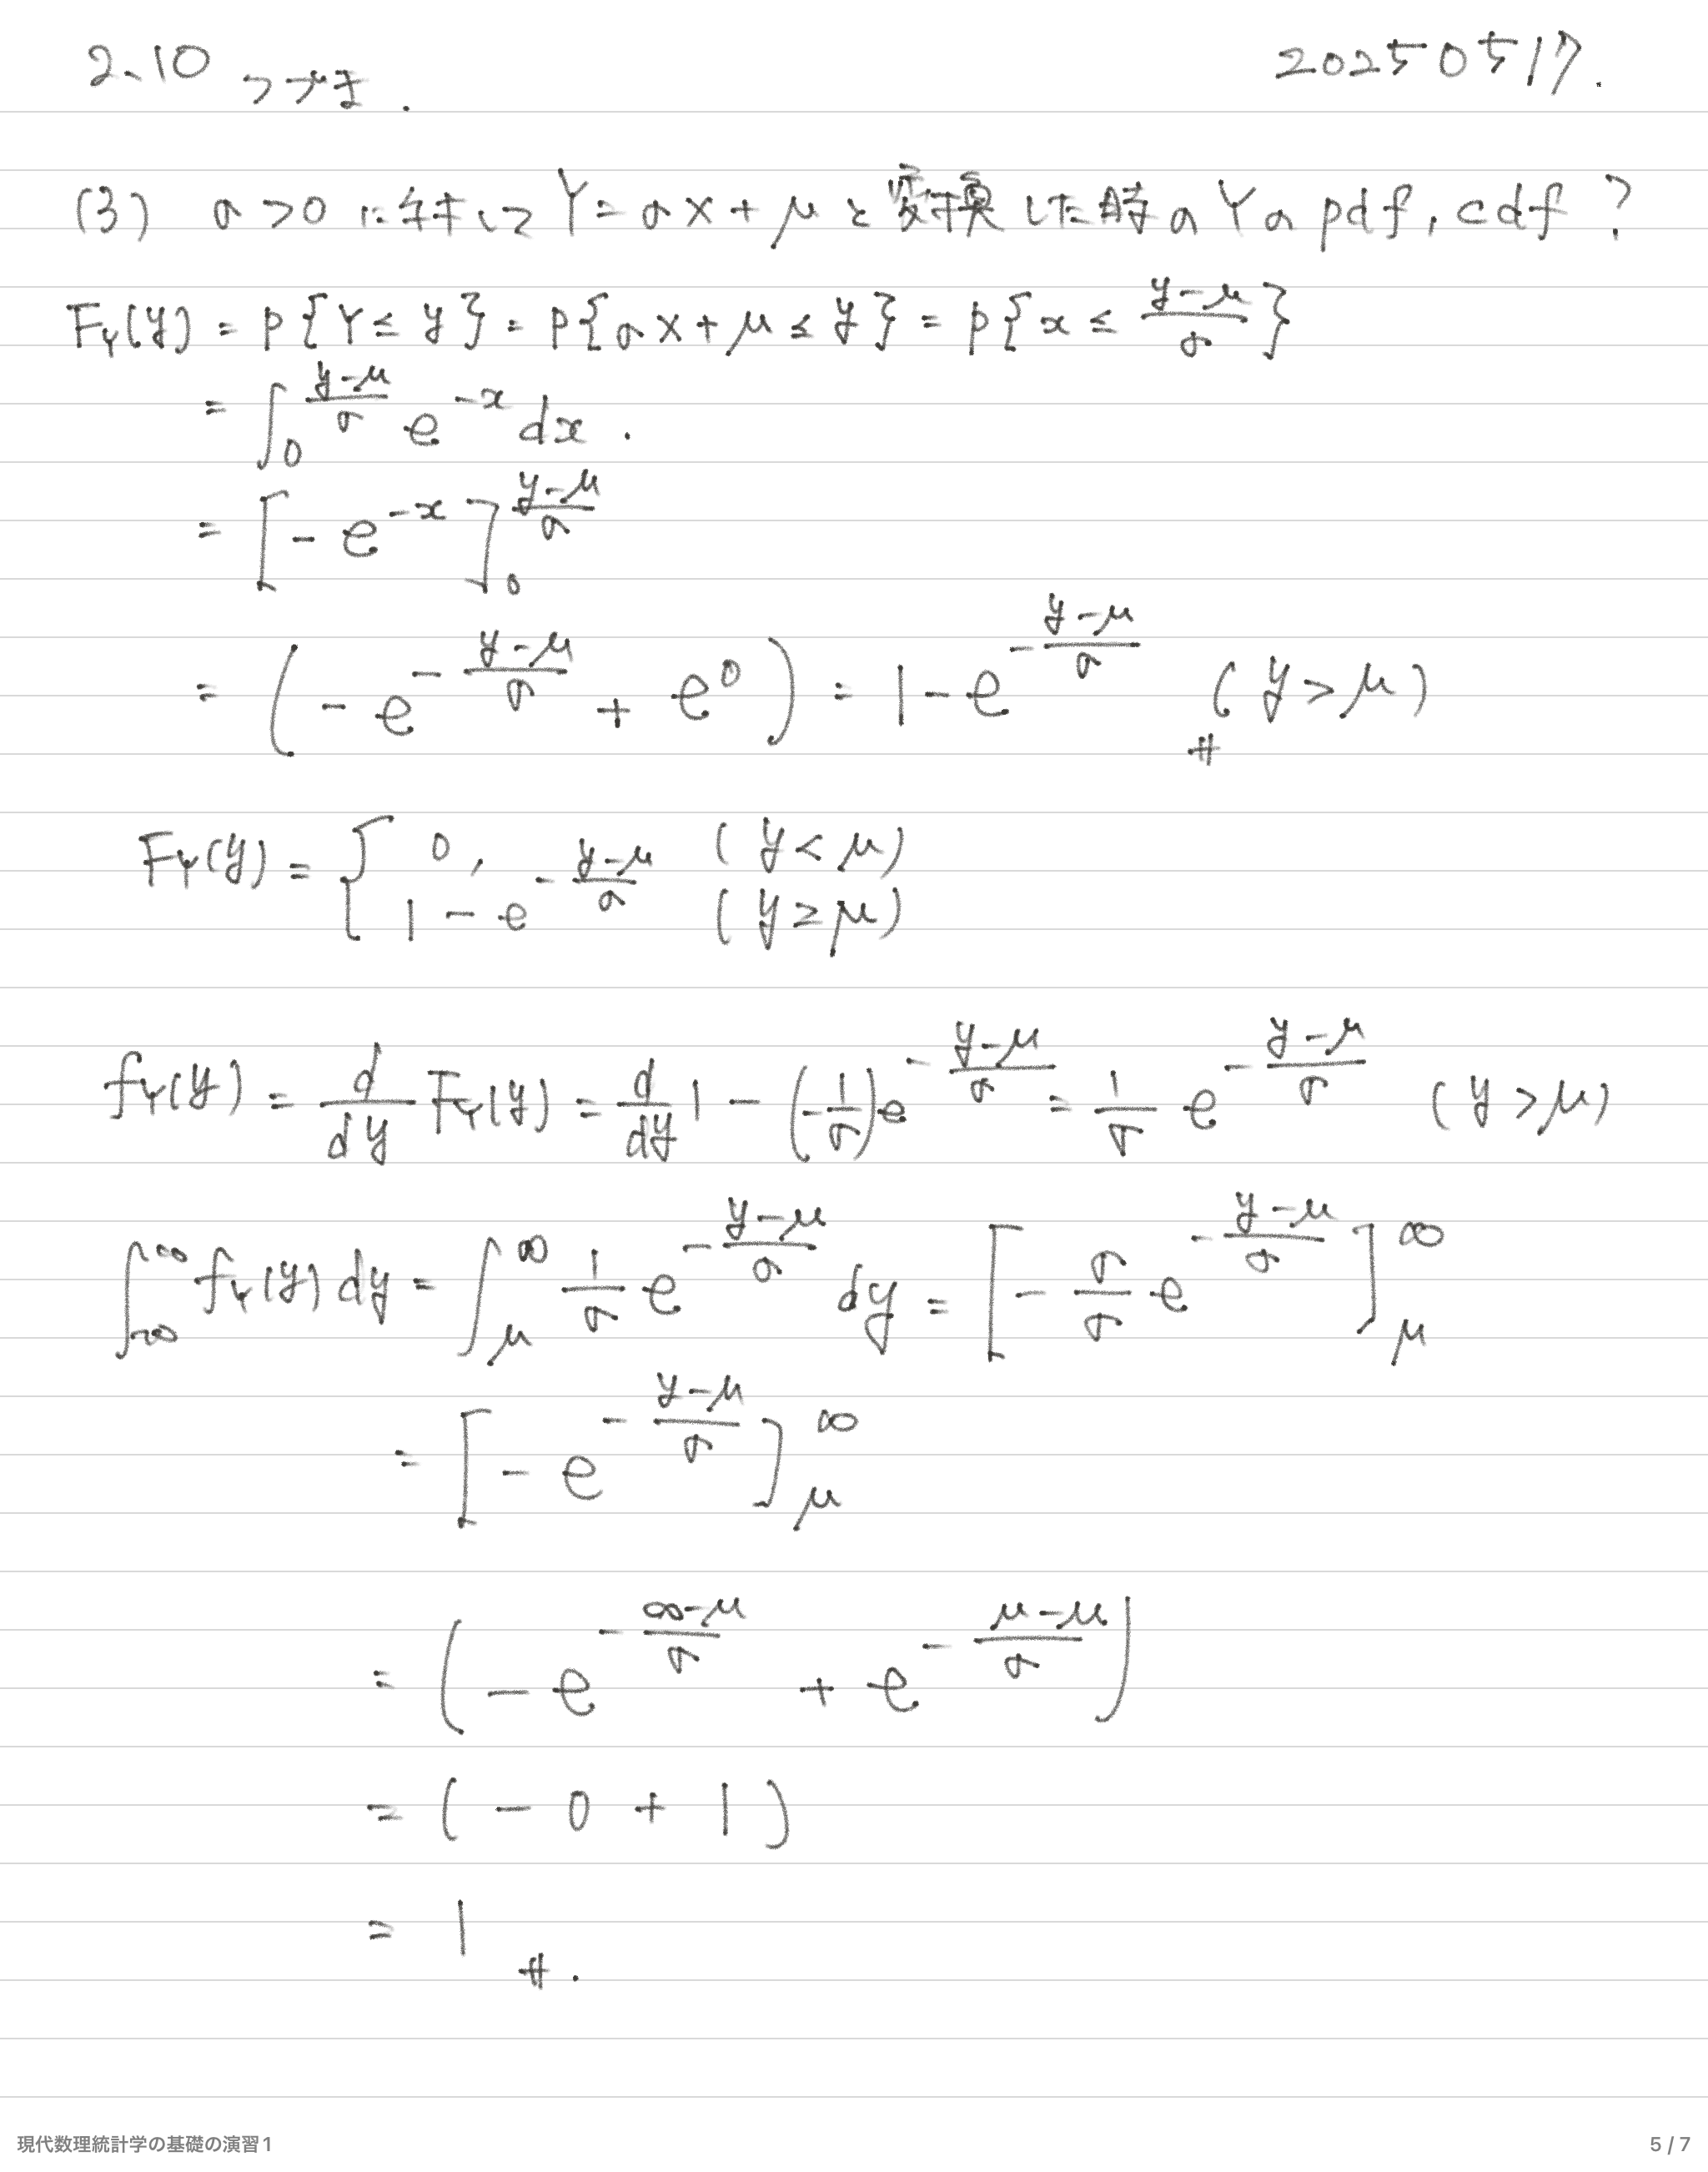 2.10 つづき.
20250517.
(3) σ>0 に対して Y=σX+μ と変換した時の Yの pdf, cdf ?
F_Y(y) = P{Y≤y} = P{σX+μ≤y} = P{x ≤ \frac{y-μ}{σ}}
= ∫_0^{\frac{y-μ}{σ}} e^{-x} dx .
= [-e^{-x}]_0^{\frac{y-μ}{σ}}
= (-e^{-\frac{y-μ}{σ}} + e^0) = 1-e^{-\frac{y-μ}{σ}} (y>μ)
F_Y(y) = { 0, (y<μ)
1-e^{-\frac{y-μ}{σ}} (y≥μ)
f_Y(y) = \frac{d}{dy} F_Y(y) = \frac{d}{dy} 1 - (-\frac{1}{σ}) e^{-\frac{y-μ}{σ}} = \frac{1}{σ} e^{-\frac{y-μ}{σ}} (y>μ)
∫_{-∞}^{∞} f_Y(y) dy = ∫_μ^∞ \frac{1}{σ} e^{-\frac{y-μ}{σ}} dy = [-\frac{σ}{σ} e^{-\frac{y-μ}{σ}}]_μ^∞
= [-e^{-\frac{y-μ}{σ}}]_μ^∞
= (-e^{-\frac{∞-μ}{σ}} + e^{-\frac{μ-μ}{σ}})
= (-0+1)
= 1 .
現代数理統計学の基礎の演習1
5 / 7